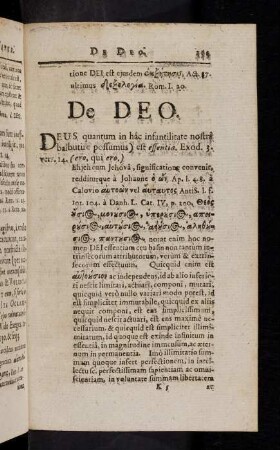 DE DEO.
tione DEI est ejusdem ἐκζήτησις, Act. 17.
ultimus δοξολογία. Rom. I. 20.
De DEO.
DEUS quantum in hâc infantilitate nostrâ
balbutire possumus) est essentia. Exod. 3.
vers. 14. (ero, qui ero.)
Ehjeh cum Jehovâ, significatione convenit,
redditurque à Johanne ὁ ὤν, Ap. I. 4. 8. à
Calovio αὐτοὼν vel αὔταυτος Antis. l. f.
int. 104. à Danh. L. Cat. IV. p. 100, Θεὸς
notat enim hoc nomen
DEI essentiam ceu basin non tantùm
internorum attributorum, verùm & extrinsecorum
effectuum. Quicquid enim est
ac independens, id ab alio inferiori
nescit limitari, actuari, componi, mutari,
quicquid verò nullo variari modo potest, id
est simpliciter immutabile, quicquid ens aliis
nequit componi, est ens simplicissimum,
quicquid nescit actuari, est ens maximè necessarium,
& quicquid est simpliciter illimitatum,
id quoque est exinde infinitum in
essentiâ, in magnitudine, atque æternum
in permanentia. Imò illimitatio summam
quoque infert perfectionem, in intellectu,
perfectissimam sapientiam ac omniscientiam,
in voluntate summam libertatem
K 5
ac